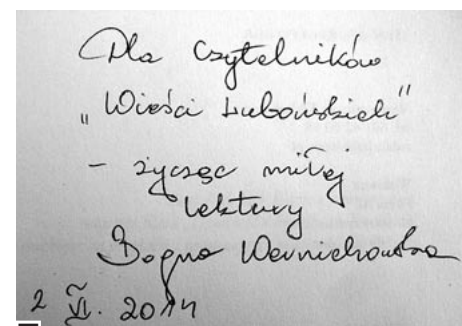 Dla Czytelników
„Wieści Lubońskich"
- życząc miłej
lektury
Bogna Wernichowska
2 VI. 2014